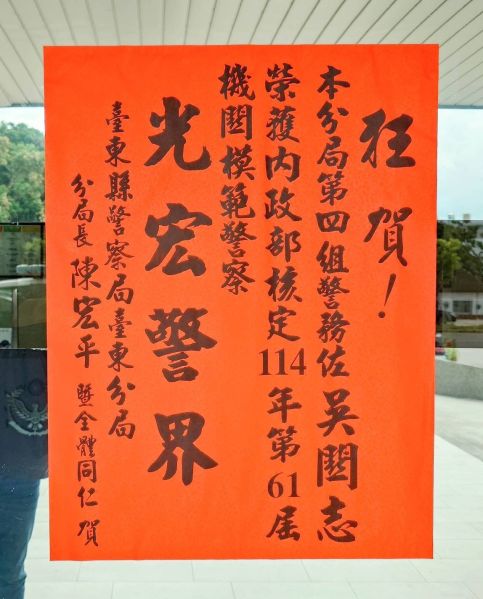 狂賀！
本分局第四組警務佐吳關志
榮獲內政部核定114年第61屆
機關模範警察
光宏警界
臺東縣警察局臺東分局
分局長 陳宏平 暨全體同仁 賀